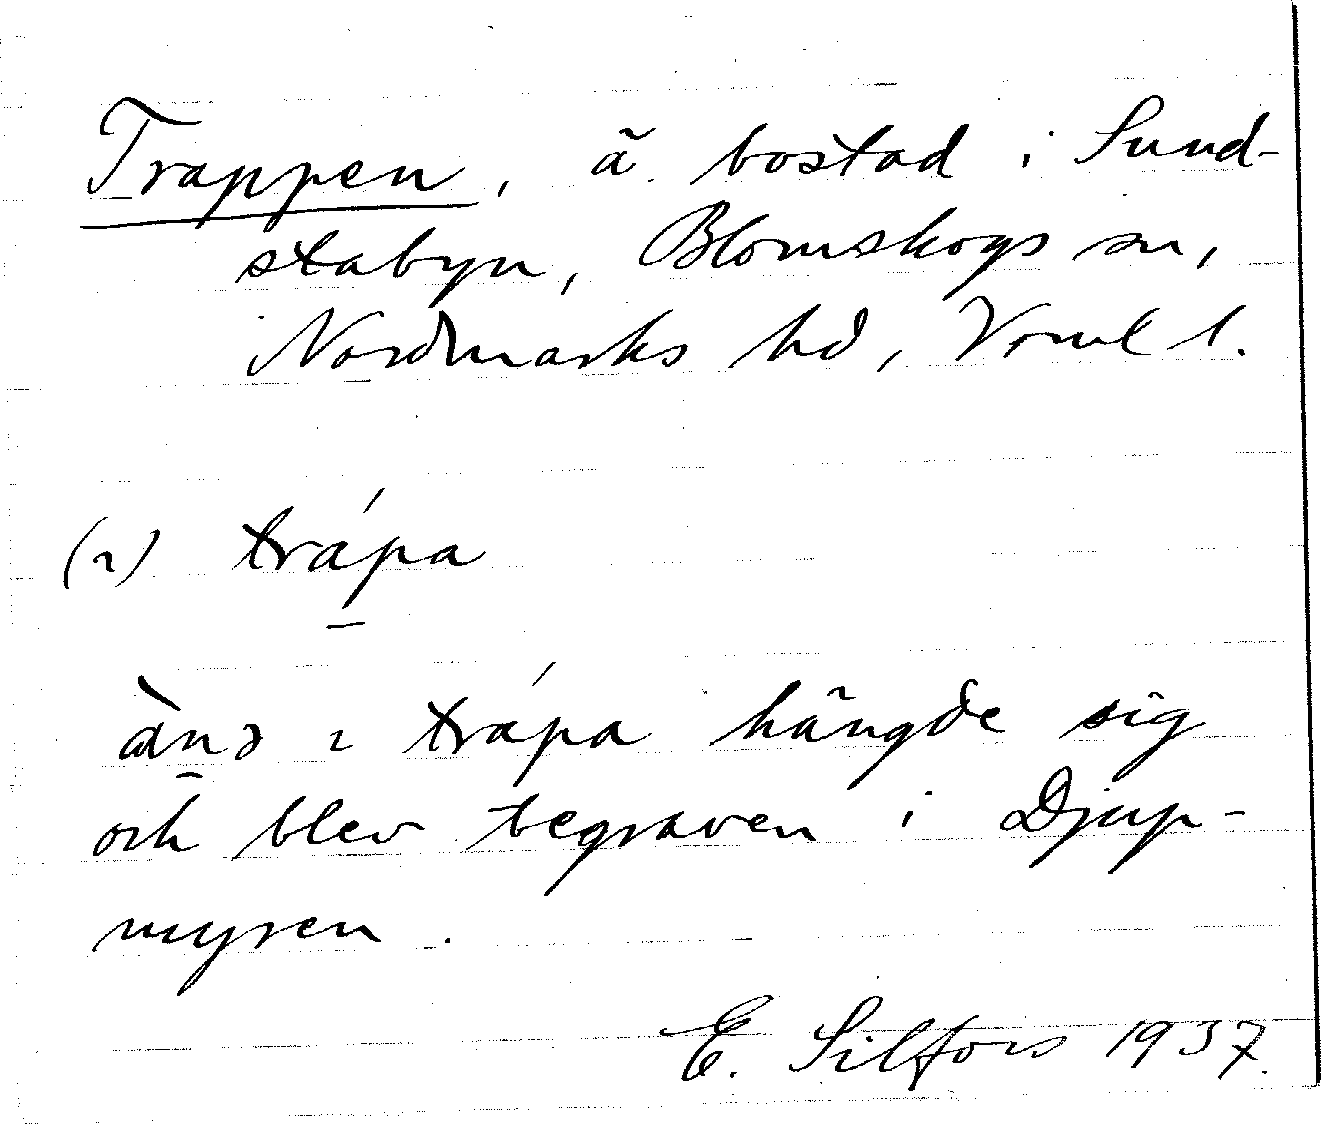 Trappen, ä bostad i Sund-
stabyn, Blomskogs sn,
Nordmarks hd, Vrml l.
(ı) trápa
ànə ı trápa hängde sig
och blev begraven i Djup-
myren.
E. Silfors 1937.